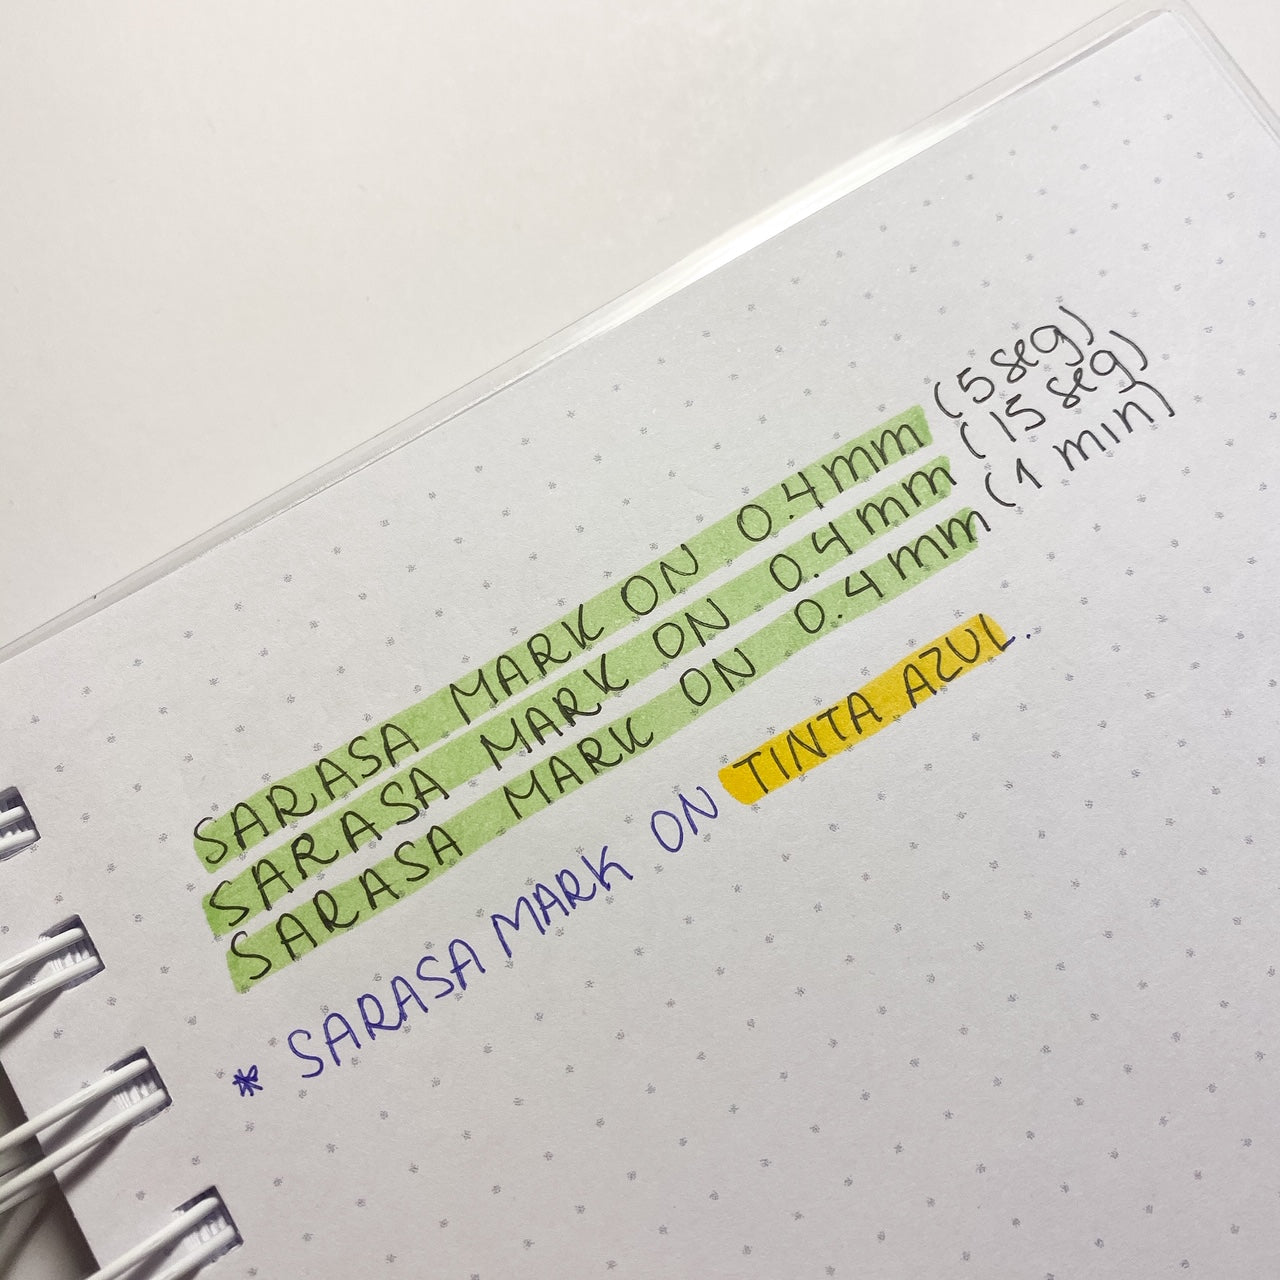 SARASA MARK ON 0.4mm (5 seg)
SARASA MARK ON 0.4mm (15 seg)
SARASA MARK ON 0.4mm (1 min)
* SARASA MARK ON TINTA AZUL.